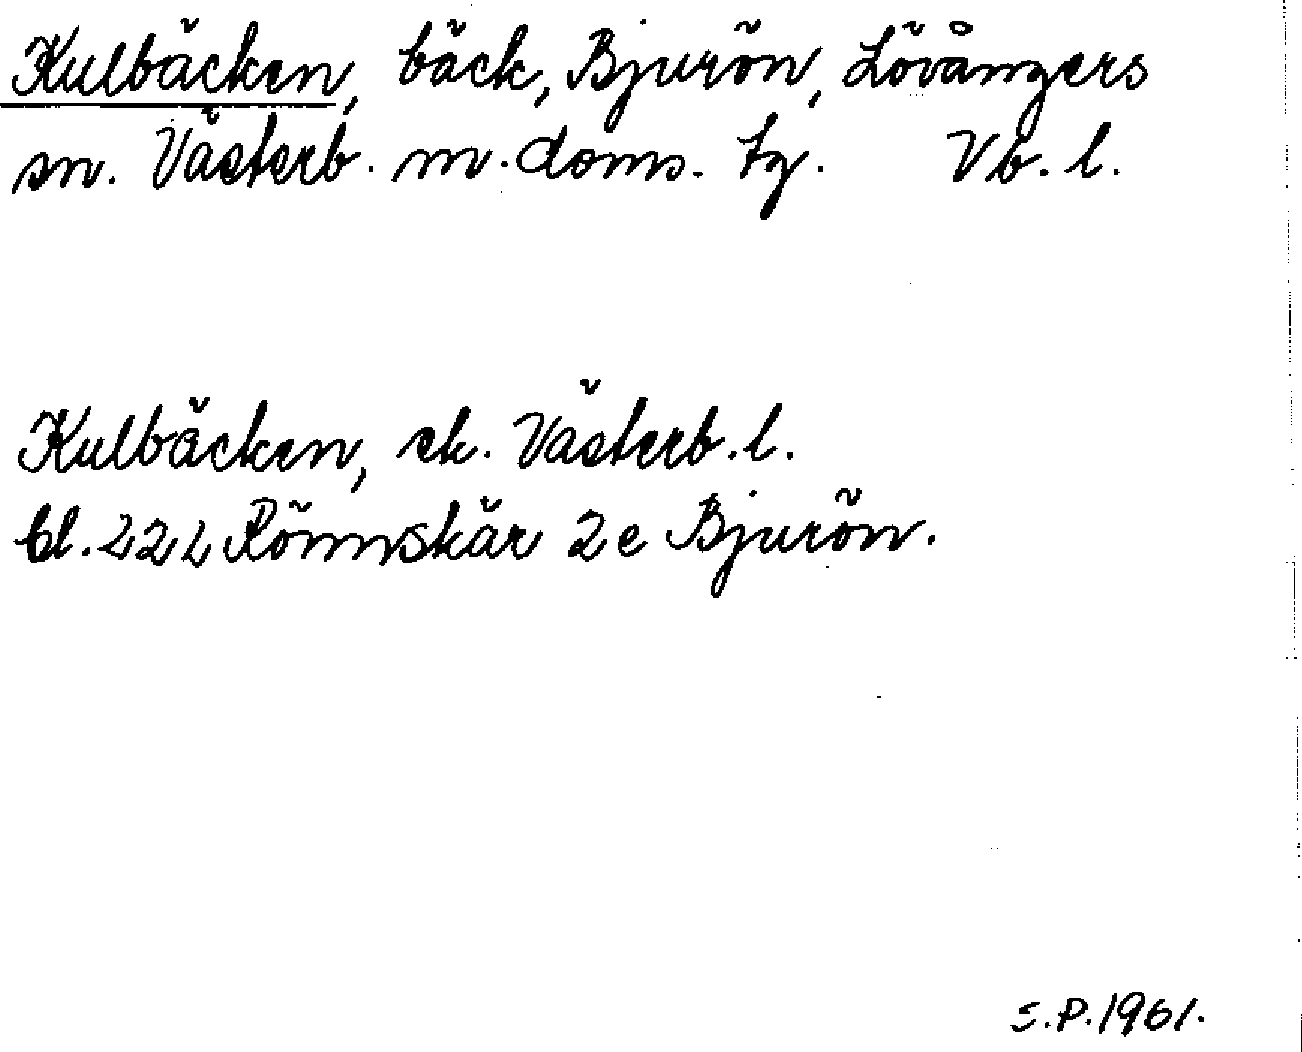 Kulbäcken, bäck, Bjurön, Lövångers
sn. Västerb. m. doms. tg. Vb. l.
Kulbäcken, ek. Västerb. l.
bl. 222 Rönnskär 2e Bjurön.
S.P. 1961.